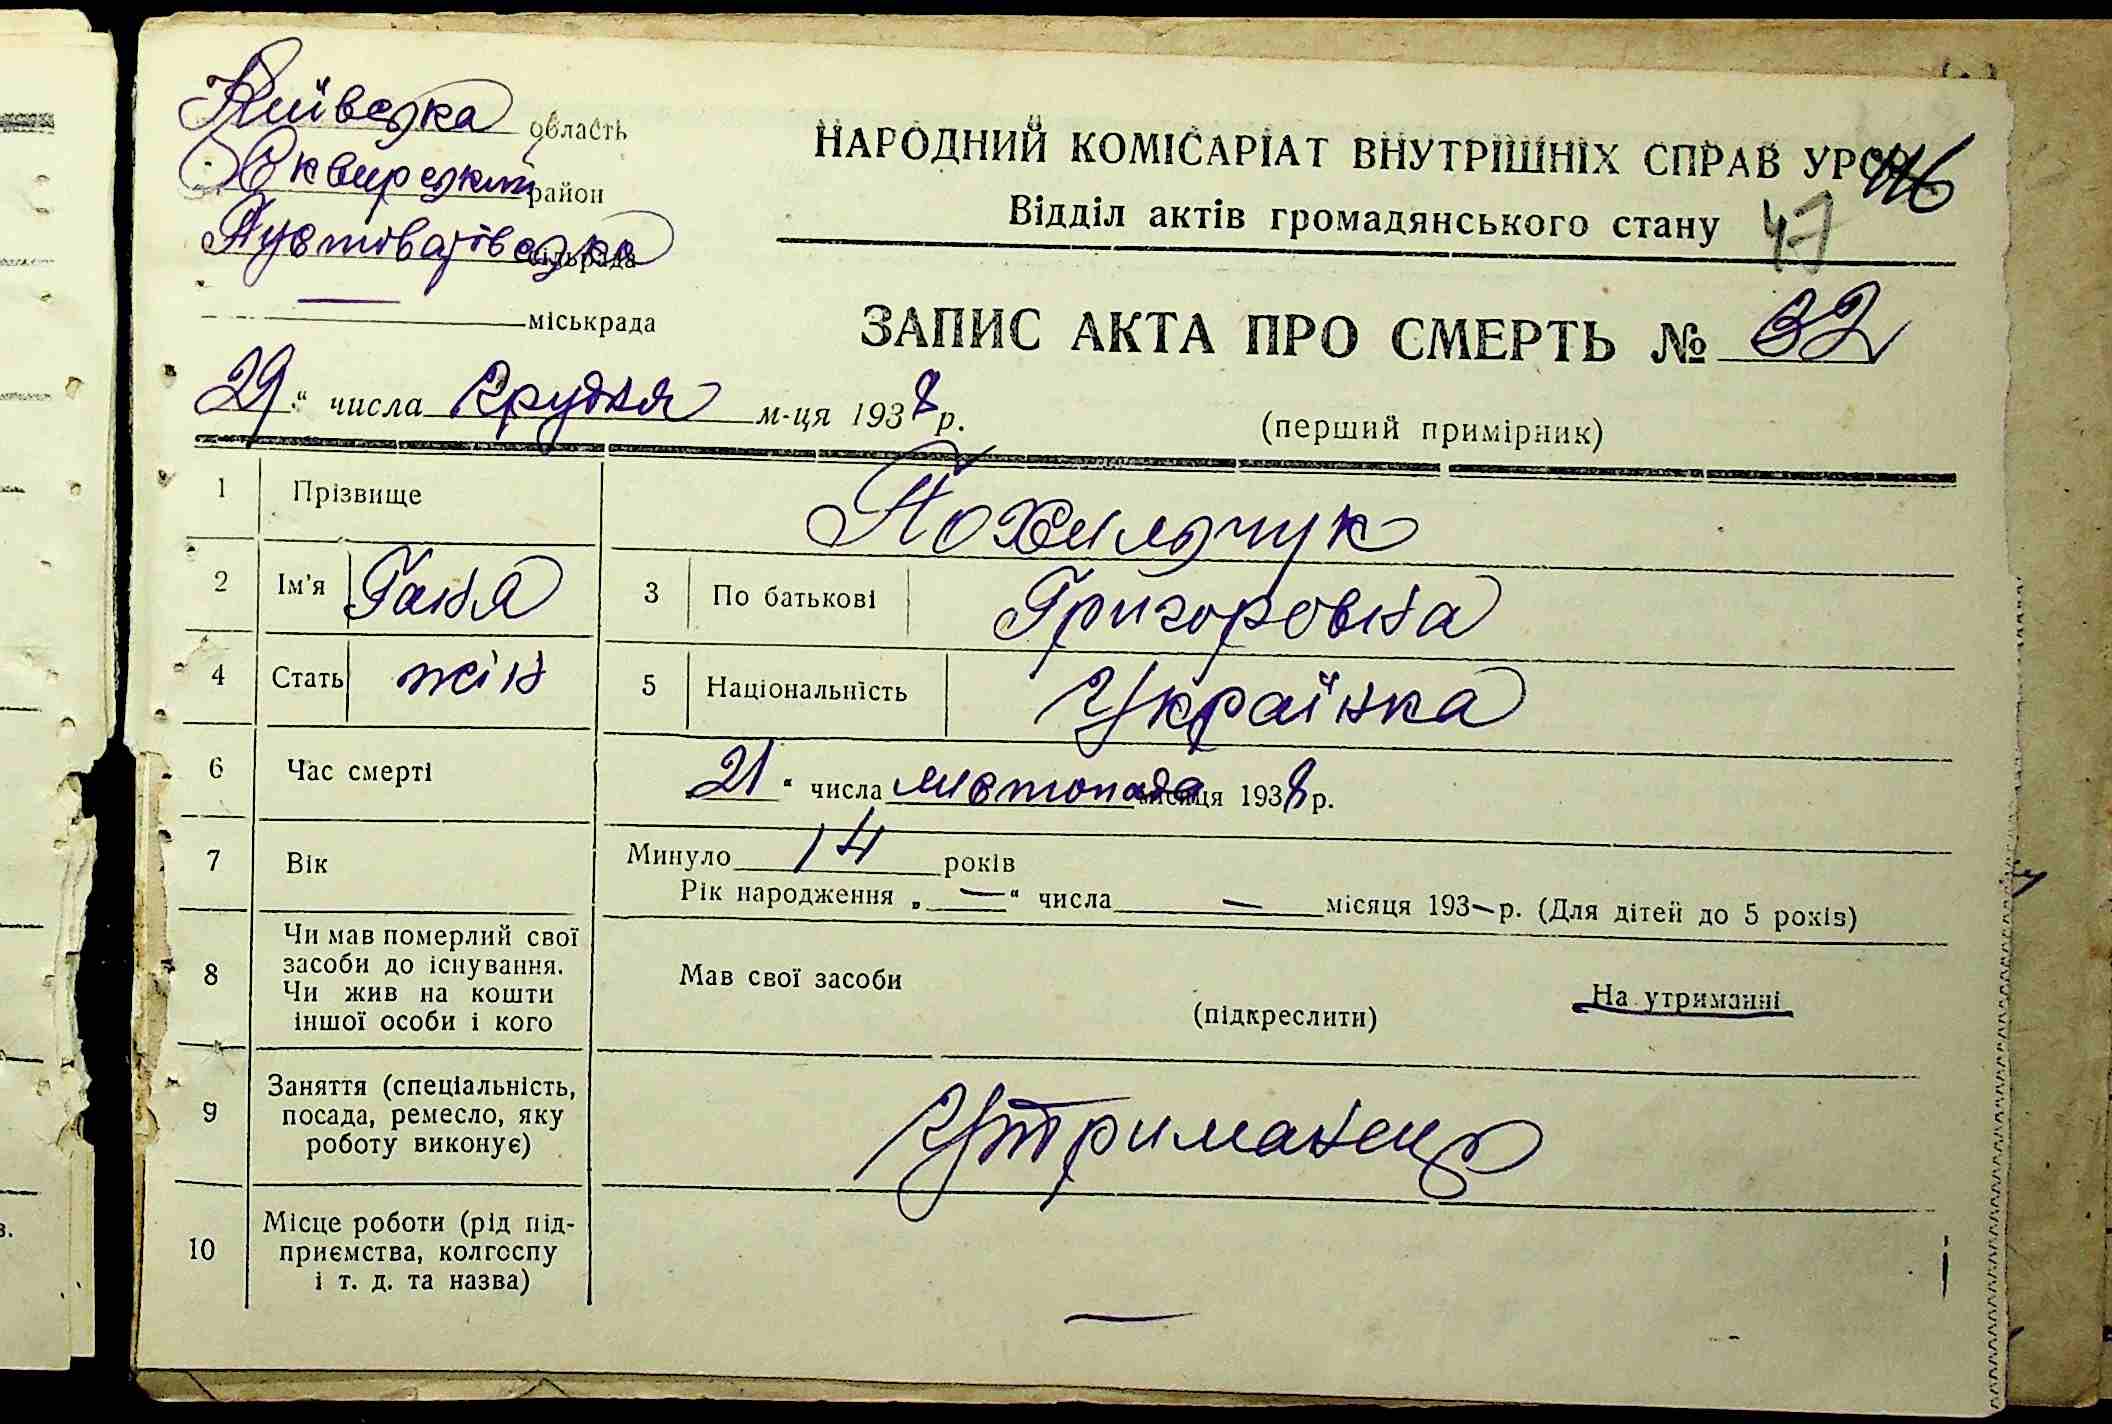 Київська область
Сквирський район
Пустоварівська сільрада
міськрада
НАРОДНИЙ КОМІСАРІАТ ВНУТРІШНІХ СПРАВ УРСР
Відділ актів громадянського стану 47
ЗАПИС АКТА ПРО СМЕРТЬ № 32
29 " числа Грудня м-ця 1938 р.
(перший примірник)
1 Прізвище Похильчук
2 Ім'я Ганя 3 По батькові Григоровна
4 Стать жін 5 Національність Українка
6 Час смерті 21 " числа листопада місяця 1938 р.
7 Вік Минуло 14 років
Рік народження „ — " числа — місяця 193— р. (Для дітей до 5 років)
8 Чи мав померлий свої
засоби до існування.
Чи жив на кошти
іншої особи і кого
Мав свої засоби (підкреслити) На утриманні
9 Заняття (спеціальність,
посада, ремесло, яку
роботу виконує)
Утриманець
10 Місце роботи (рід під-
приємства, колгоспу
і т. д. та назва)
—